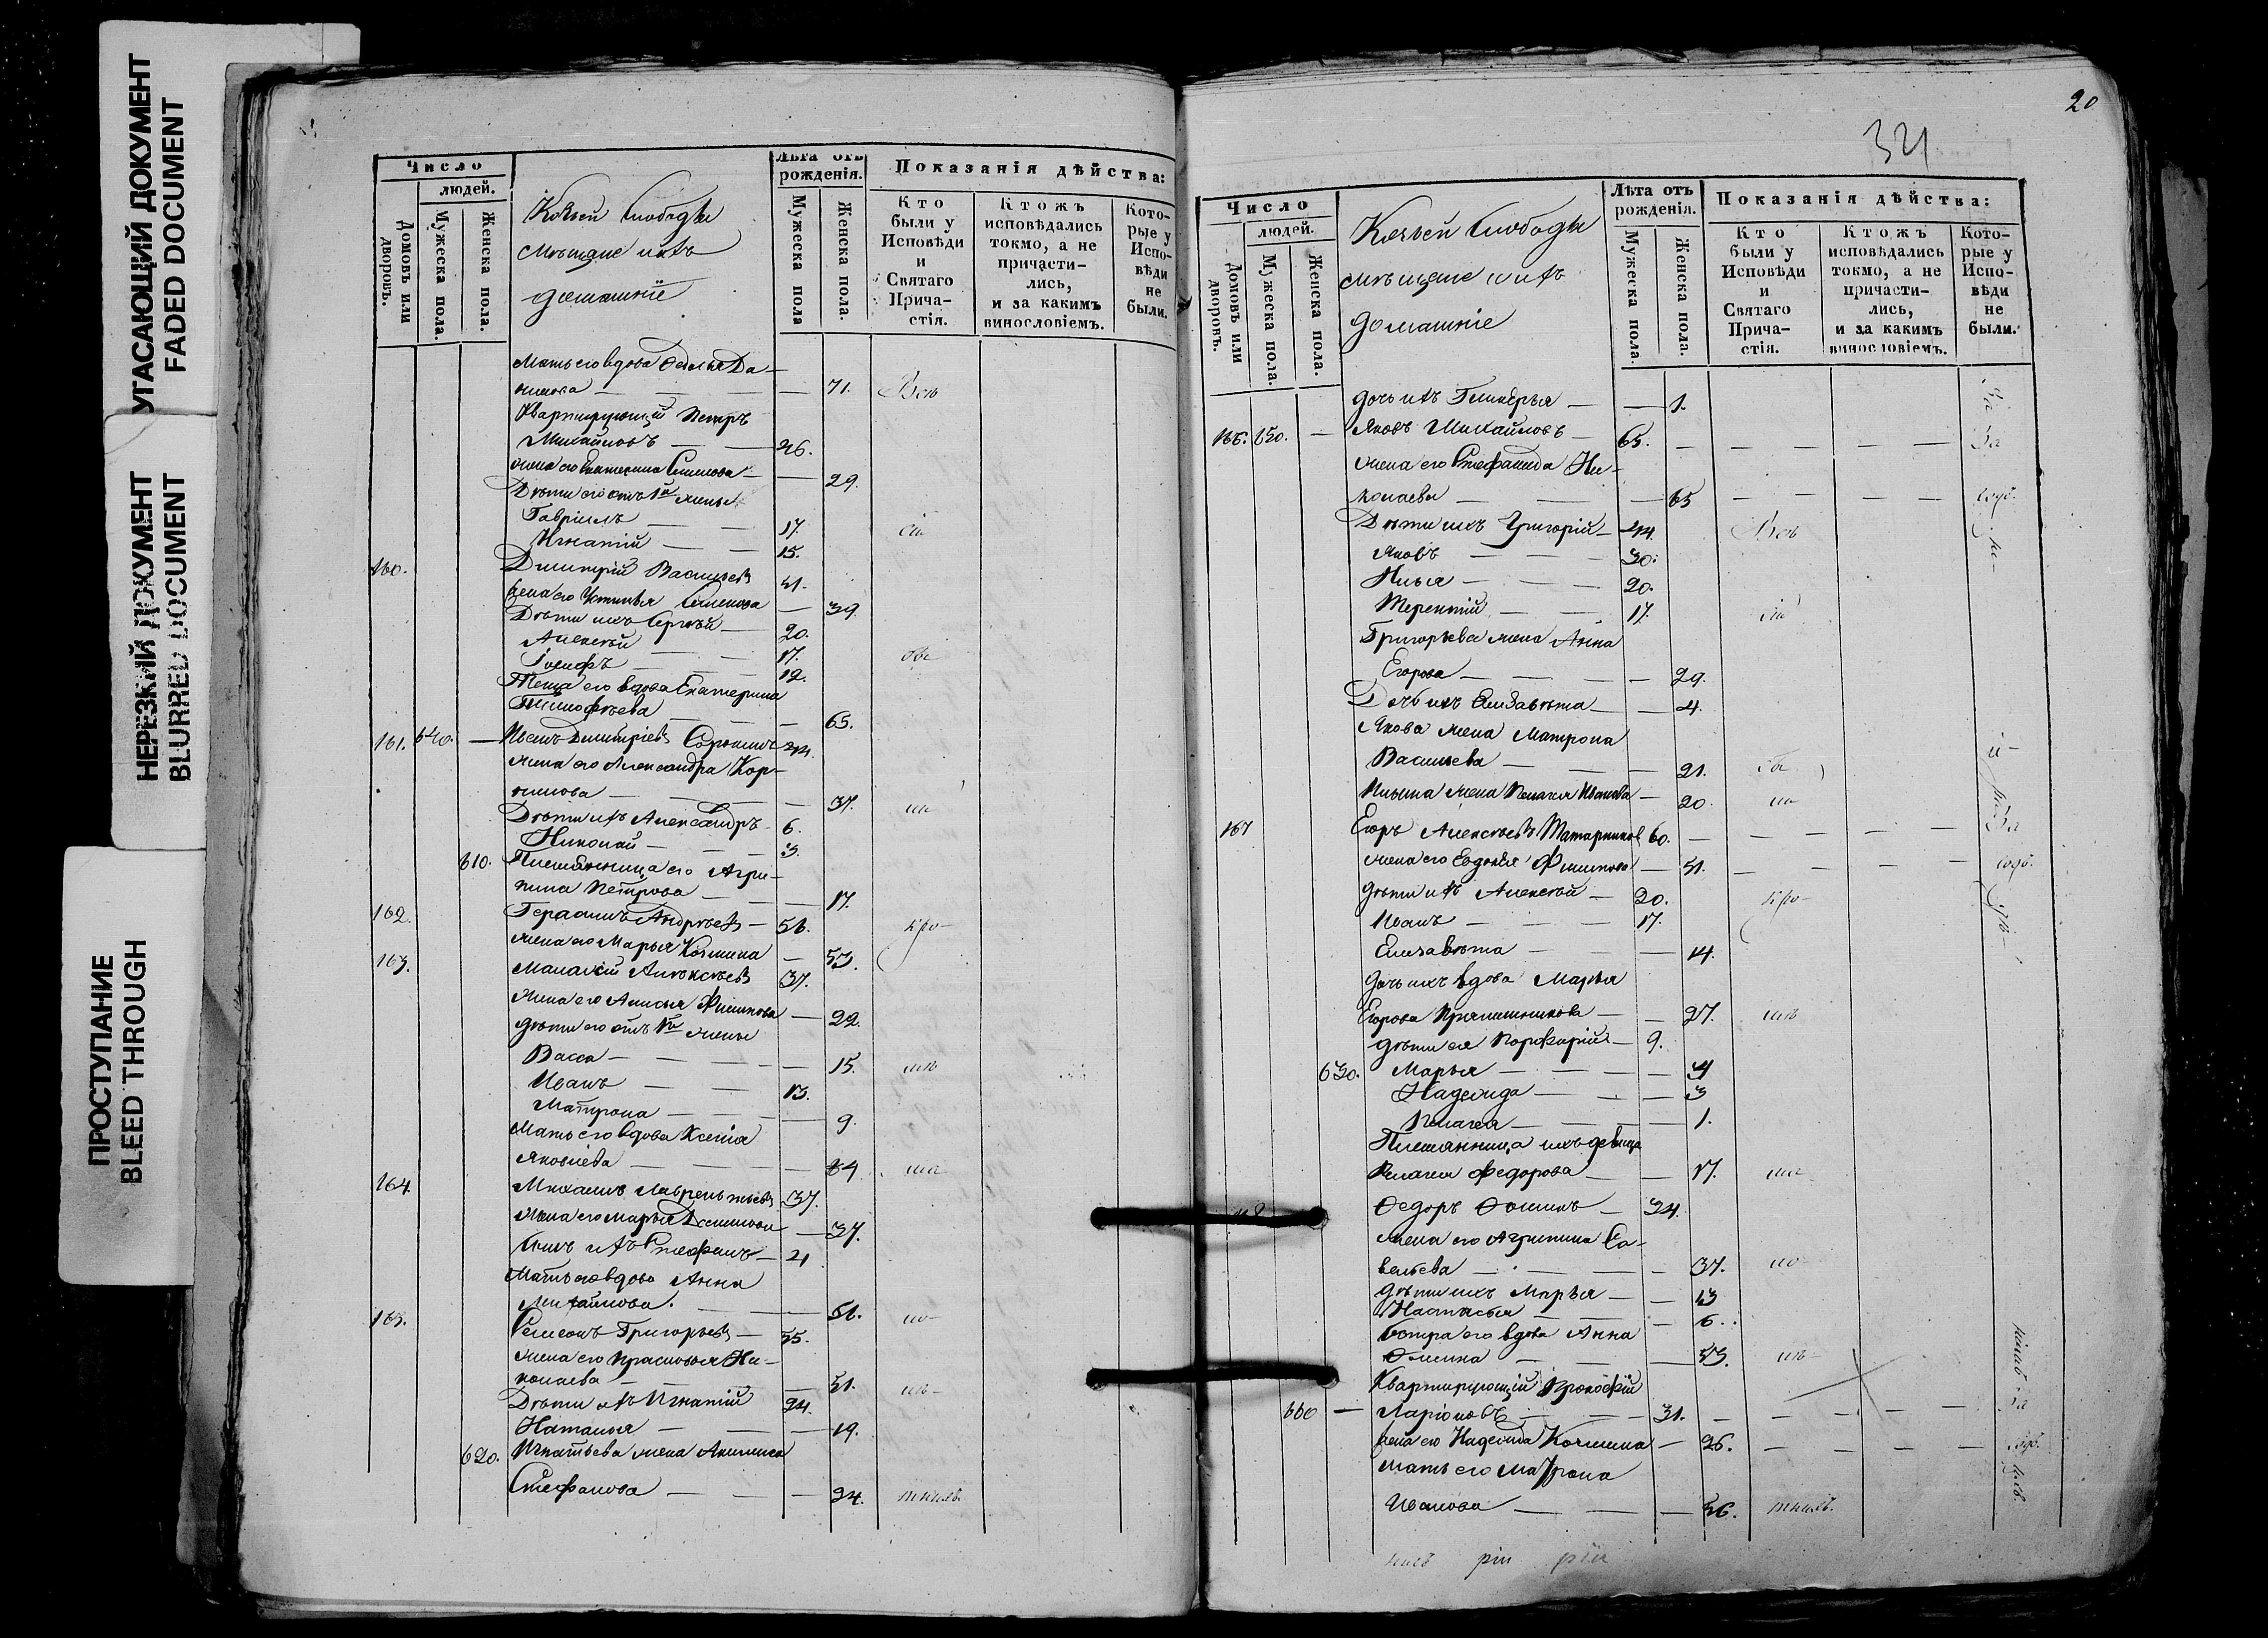 УГАСАЮЩИЙ ДОКУМЕНТ
FADED DOCUMENT
НЕРЕЗКИЙ ДОКУМЕНТ
BLURRED DOCUMENT
ПРОСТУПАНИЕ
BLEED THROUGH
Число
людей.
Домовъ или дворовъ.
Мужеска пола.
Женска пола.
слободы
мѣщане и ихъ
домашніе
Лѣта отъ рожденія.
Мужеска пола
Женска пола.
Показанія дѣйства:
Кто были у Исповѣди и Святаго Прича-стія.
Ктожъ исповѣдались токмо, а не причасти-лись, и за какимъ винословіемъ.
Кото-рые у Испо-вѣди не были.
Мать его вдова Да-
нилова — 71. Всѣ
Квартирующій Петръ
Михайловъ — 26.
жена его Екатерина — 29.
Дѣти его отъ 1й жены
Гавріилъ — 17. сіи
Игнатій — 15.
160. Димитрій Васильевъ 41.
жена его Устинья Семенова — 39.
Дѣти ихъ Сергѣй — 20.
Алексѣй — 17.
Іосифъ — 12.
Теща его вдова Екатерина
Тимофѣева — 65.
161. 640. — Иванъ Димитріевъ Сорокинъ 44.
жена его Александра Кор-
нилова — 37.
Дѣти ихъ Александръ 6.
Николай — 3.
610. Племянница его Агри-
пина Петрова — 17.
162. Герасимъ Андреевъ — 56. кро-
жена его Марья Козмина — 53.
163. Малахій Алексѣевъ 37.
жена его Анисья Филипова — 22.
дѣти его отъ 1й жены
Васса — 15.
Иванъ — 13.
Матрона — 9.
Мать его вдова Ксенія
Яковлева — 64
164. Михаилъ Лаврентьевъ 37.
жена его Марья — 37.
Сынъ ихъ Стефанъ — 4
Мать его вдова Анна
Михайлова. — 61.
165. Семенъ Григорьевъ — 55.
жена его Прасковья Ни-
колаева — 51.
Дѣти ихъ Игнатій 24.
Наталья — 19.
620. Игнатьева жена Акилина
Стефанова — 24.
20
Число
людей.
Домовъ или дворовъ.
Мужеска пола.
Женска пола.
слободы
мѣщане и ихъ
домашніе
Лѣта отъ рожденія.
Мужеска пола.
Женска пола.
Показанія дѣйства:
Кто были у Исповѣди и Святаго Прича-стія.
Ктожъ исповѣдались токмо, а не причасти-лись, и за какимъ винословіемъ.
Кото-рые у Испо-вѣди не были.
дочь ихъ Гликерья — 1.
166. 650. — Яковъ Михайловъ — 65. — За
жена его Стефанида Ни-
колаева — 65
Дѣти ихъ Григорій — 44. Всѣ
Яковъ — 30.
Илья — 20.
Терентій — 17. сіи
Григорьева жена Анна
Егорова — 29.
Дочь ихъ Елизавѣта — 4.
Якова жена Матрона
Васильева — 21.
Ильина жена Пелагея Иванова — 20.
167 Егоръ Алексѣевъ Татарниковъ 60. — За
жена его Евдокія Филипова — 51.
дѣти ихъ Алексѣй — 20. кро-
Иванъ — 17.
Елизавѣта — 14.
дочь ихъ вдова Марья
Егорова Прянишникова — 27.
дѣти ея Порфирій — 9.
630. Марья — 4
Надежда — 3
Пелагея — 1.
Племянница ихъ девица
Пелагея Федорова — 17.
Ѳедоръ Ѳоминъ — 34.
жена его Агрипина Са-
вельева — 37.
дѣти ихъ Марья — 13
Настасья — 6.
Сестра его вдова Анна
Ѳомина — 53.
Квартирующій Прокофій
660 — Ларіоновъ — 31. — За
жена его Надежда Козмина — 26.
мать его Матрона
Иванова — 56.